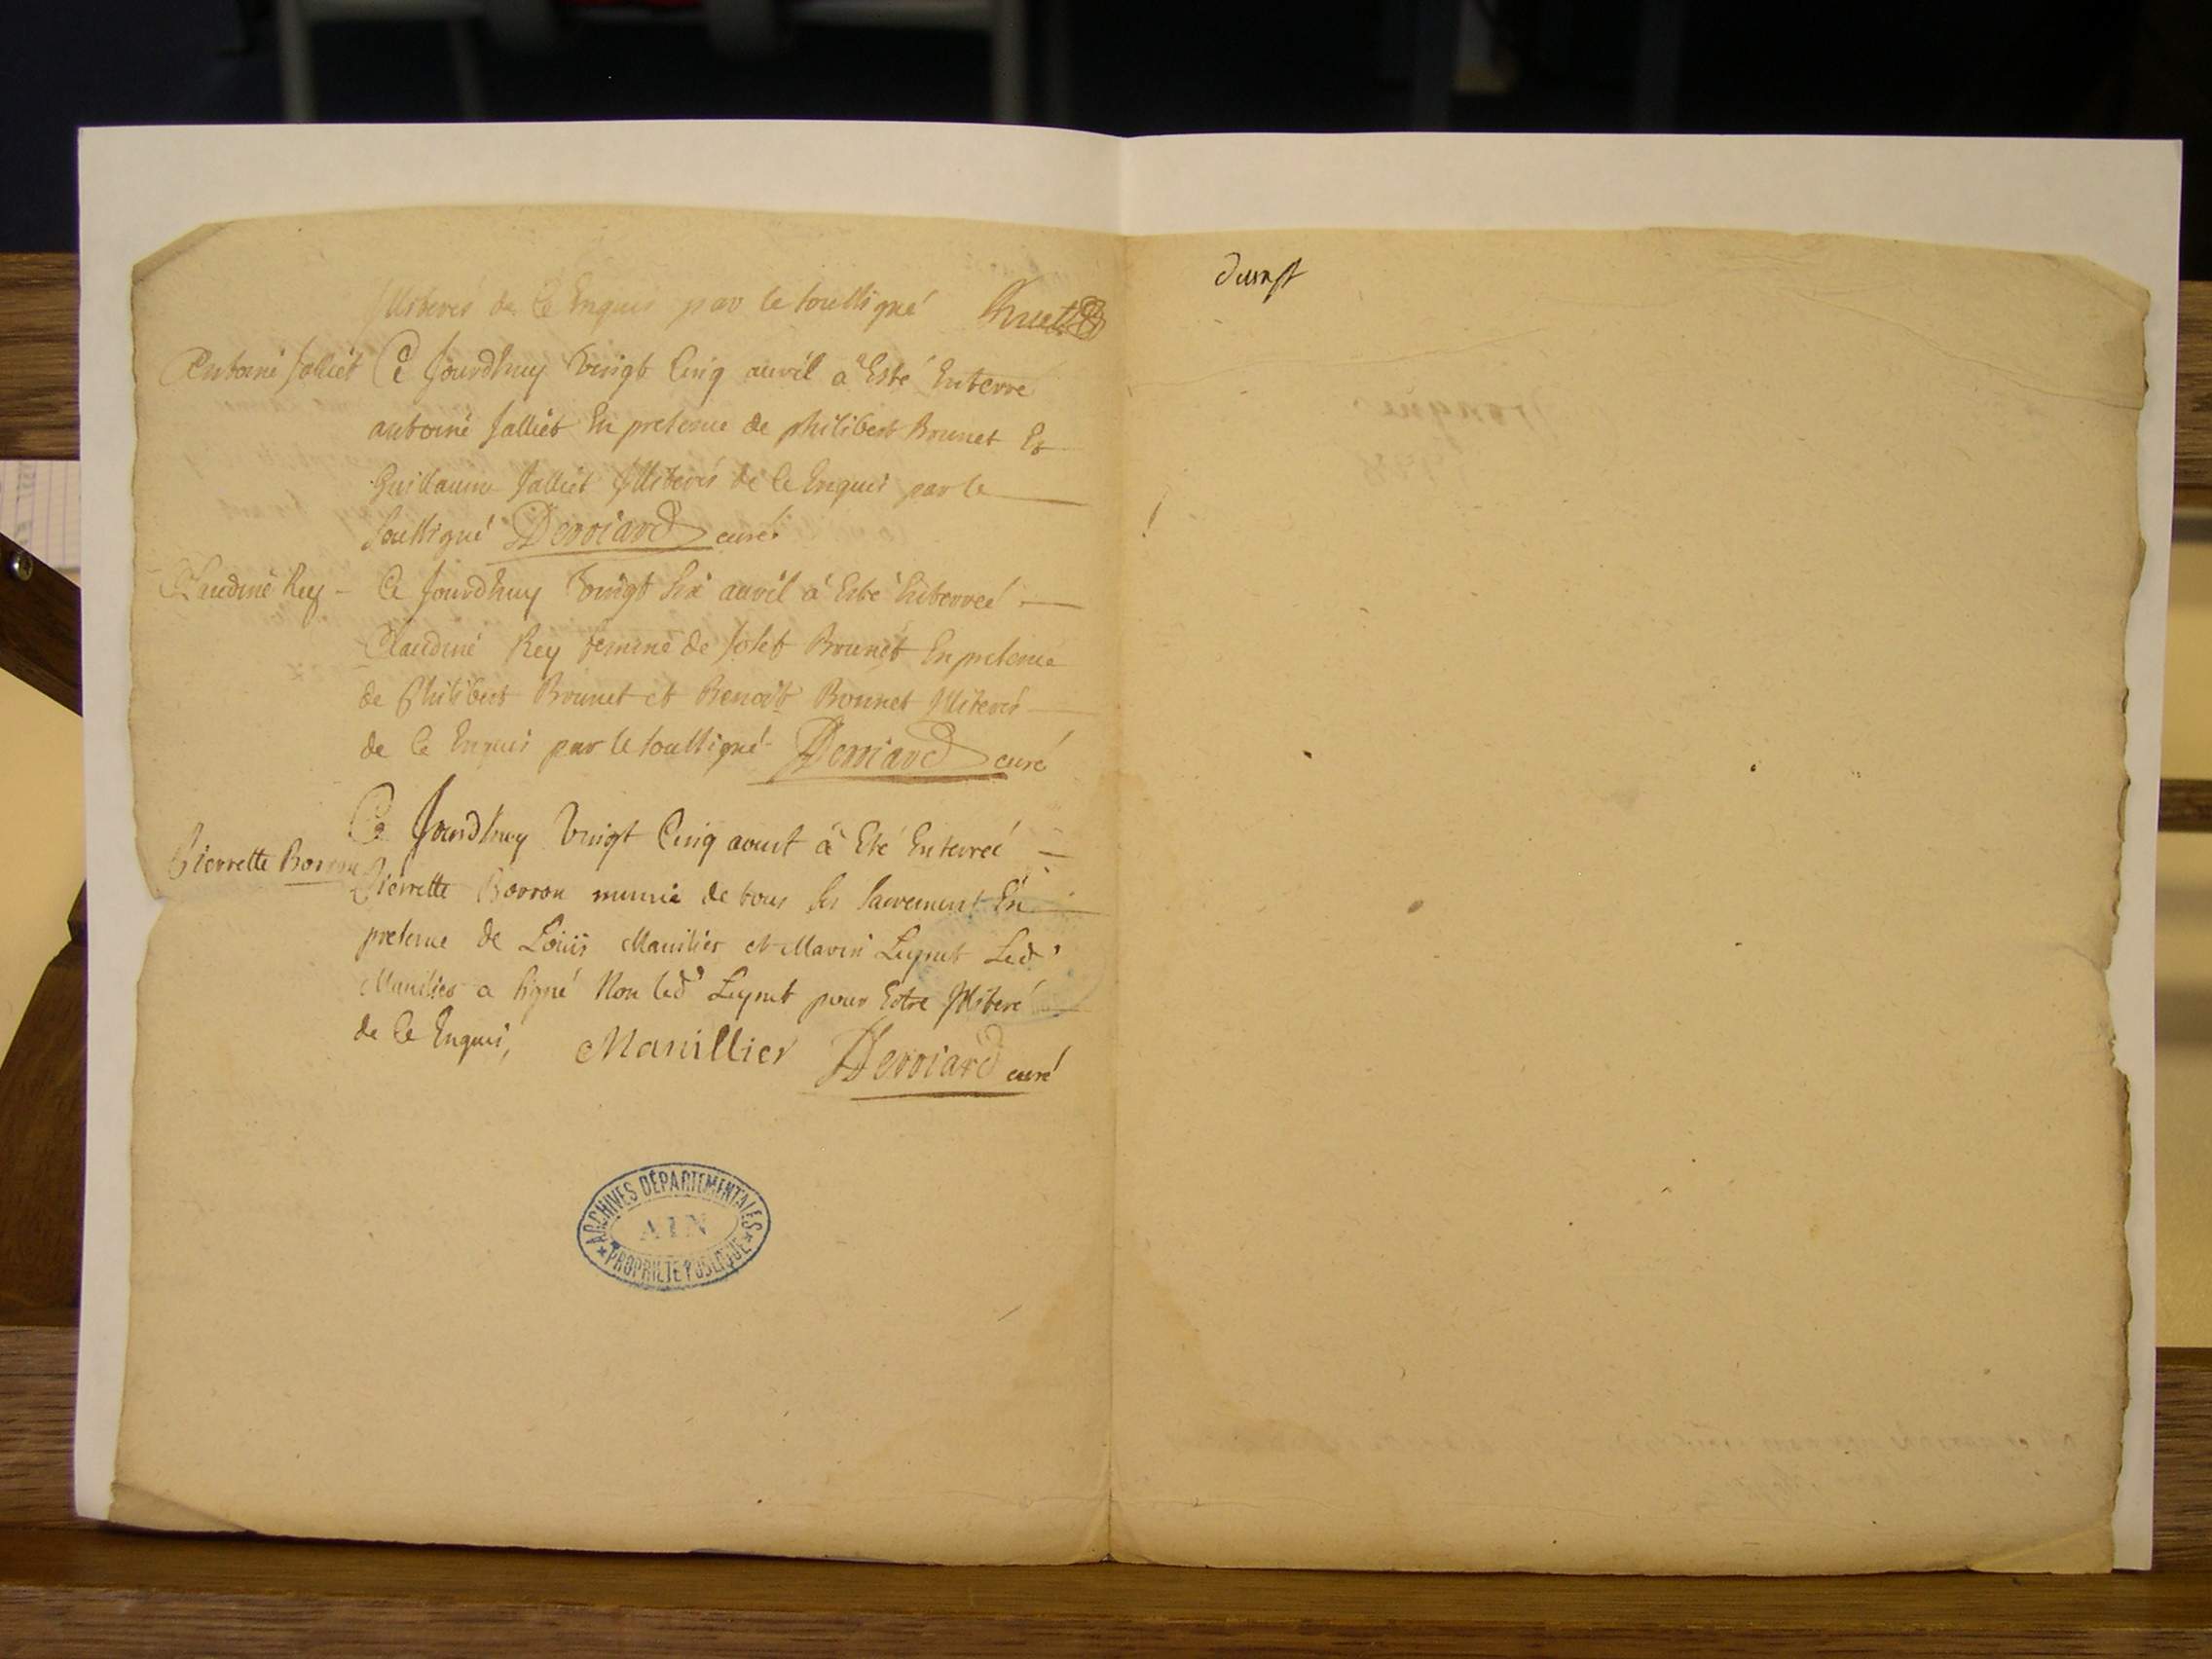 Illiterés de Ce Enquis par le soussigné
Antoine Jalliet
Ce Jourdhuy vingt Cinq auvril a Esté Enterre
antoine Jalliet En presence de philibert Brunet Et
Guillaume Jalliet Illiterés de Ce Enquis par le
soussigné Derviard curé
Claudine Rey
Ce Jourdhuy vingt six auvril à Esté Enterreé
Claudine Rey femme de Josef Brunet En presence
de Philibert Brunet et Benoit Bonnet Illiterés
de Ce Enquis par le soussigné Derviard curé
Pierrette Borron
Ce Jourdhuy vingt Cinq aoust à Eté Enterreé
Pierrette Borron munie de tous ses sacrement En
presence de Loüis Manilier et Marin Led
Manilier a signé Non led pour Estre Illiteré
de Ce Enquis, Manillier Derviard curé
ARCHIVES DÉPARTEMENTALES
AIN
PROPRIÉTÉ PUBLIQUE